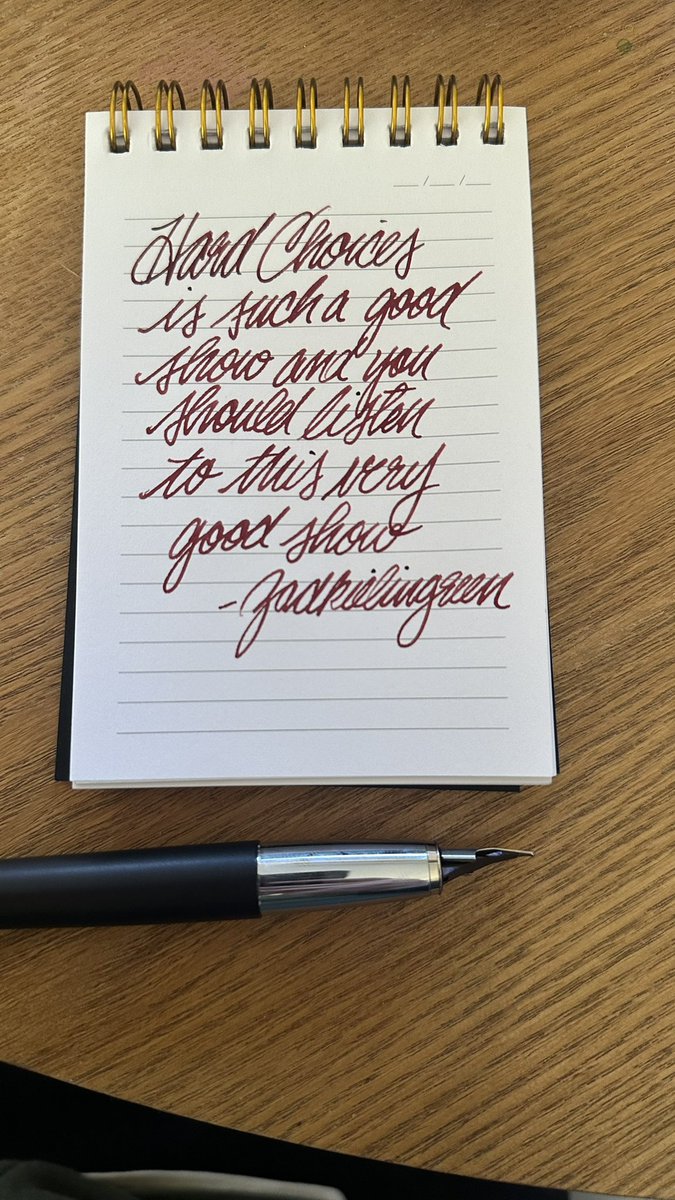 Hard Choices
is such a good
show and you
should listen
to this very
good show
- Zadkielingreen